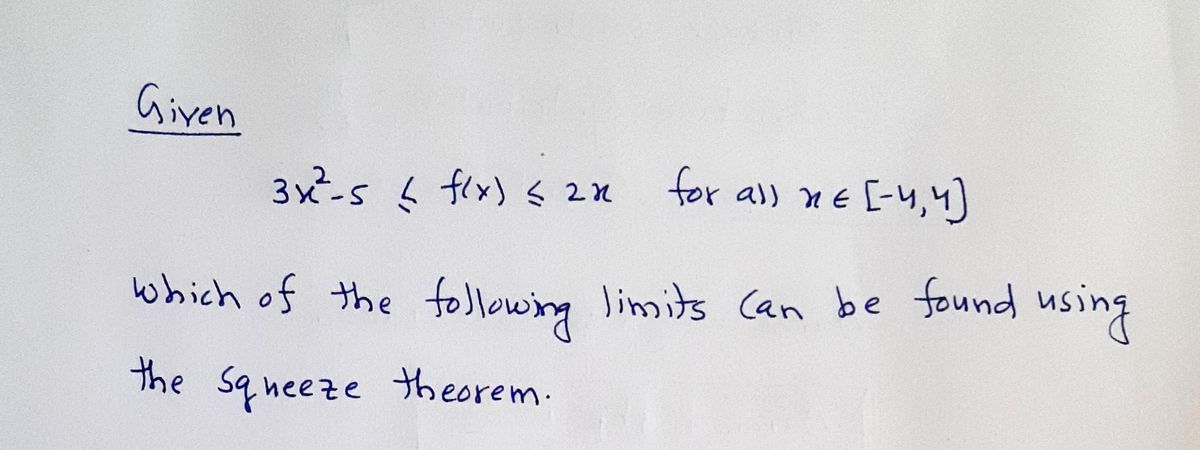 Given
3x²-5 ≤ f(x) ≤ 2x for all x ∈ [-4,4]
which of the following limits can be found using
the squeeze theorem.